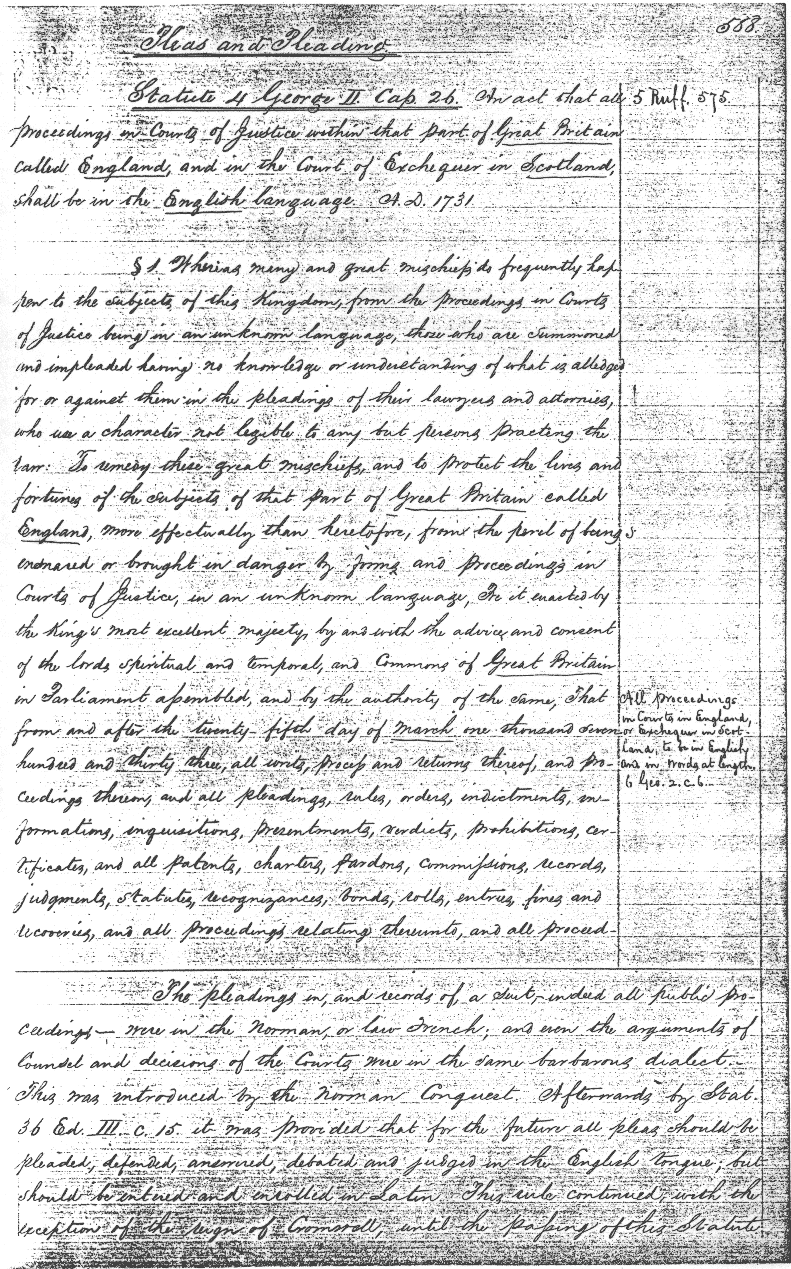 558.
Pleas and Pleading
Statute 4 George II. Cap. 26. An act that all
5 Ruff. 575.
proceedings in Courts of Justice within that part of Great Britain
called England, and in the Court of Exchequer in Scotland,
shall be in the English language. A.D. 1731
§ 1. Whereas many and great mischiefs do frequently hap
pen to the subjects of this Kingdom, from the proceedings in Courts
of Justice being in an unknown language, those who are summoned
and impleaded having no knowledge or understanding of what is alledged
for or against them in the pleadings of their lawyers and attornies,
who use a character not legible to any but persons practing the
law: To remedy these great mischiefs, and to protect the lives and
fortunes of the subjects of that part of Great Britain called
England, more effectually than heretofore, from the peril of being
ensnared or brought in danger by forms and proceedings in
Courts of Justice, in an unknown language, Be it enacted by
the King's most excellent majesty, by and with the advice and consent
of the lords spiritual and temporal, and Commons of Great Britain
in Parliament assembled, and by the authority of the same, That
from and after the twenty-fifth day of March one thousand seven
hundred and thirty three, all writs, process and returns thereof, and pro-
ceedings thereon, and all pleadings, rules, orders, indictments, in-
formations, inquisitions, presentments, verdicts, prohibitions, cer-
tificates, and all patents, charters, pardons, commissions, records,
judgments, statutes, recognizances, bonds, rolls, entries, fines and
recoveries, and all proceedings relating thereunto, and all proceed-
All proceedings
in Courts in England,
or Exchequer in Scot-
land, to be in English
and in words at length.
6 Geo. 2. c. 6.
The pleadings in, and records of, a suit,- indeed all public pro-
ceedings - were in the Norman, or law French; and even the arguments of
Counsel and decisions of the Courts were in the same barbarous dialect.-
This was introduced by the Norman Conquest. Afterwards by Stat.
36 Ed. III. c. 15. it was provided that for the future all pleas should be
pleaded, defended, answered, debated and judged in the English tongue, but
should be entered and enrolled in Latin. This rule continued, with the
exception of the reign of Cromwell, until the passing of this Statute